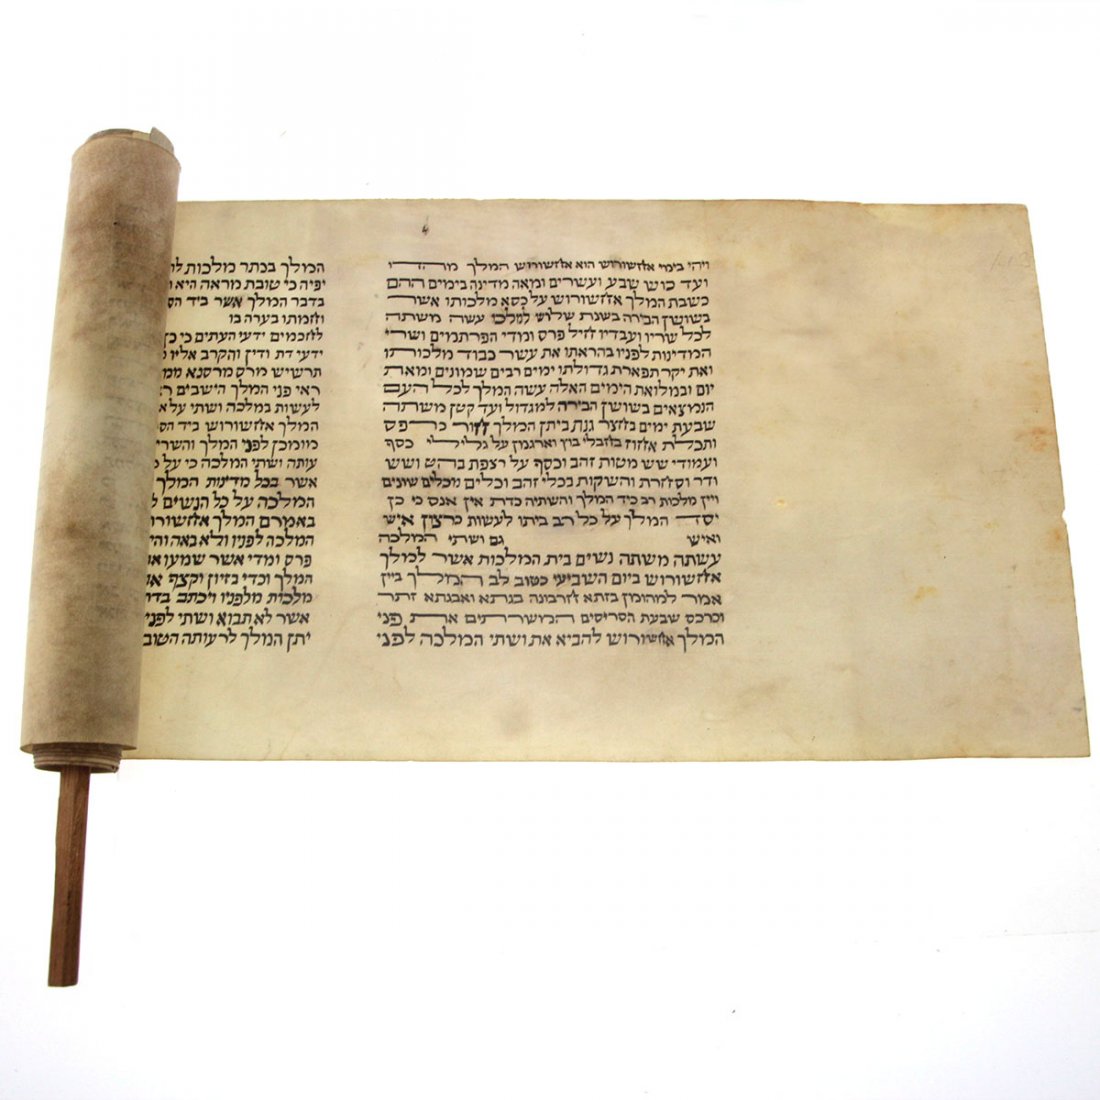 ויהי בימי אחשורוש הוא אחשורוש המלך מהדו
ועד כוש שבע ועשרים ומאה מדינה בימים ההם
כשבת המלך אחשורוש על כסא מלכותו אשר
בשושן הבירה בשנת שלוש למלכו עשה משתה
לכל שריו ועבדיו חיל פרס ומדי הפרתמים ושרי
המדינות לפניו בהראתו את עשר כבוד מלכותו
ואת יקר תפארת גדולתו ימים רבים שמונים ומאת
יום ובמלואת הימים האלה עשה המלך לכל העם
הנמצאים בשושן הבירה למגדול ועד קטן משתה
שבעת ימים בחצר גנת ביתן המלך חור כרפס
ותכלת אחוז בחבלי בוץ וארגמן על גלילי כסף
ועמודי שש מטות זהב וכסף על רצפת בהט ושש
ודר וסחרת והשקות בכלי זהב וכלים מכלים שונים
ויין מלכות רב כיד המלך והשתיה כדת אין אנס כי כן
יסד המלך על כל רב ביתו לעשות כרצון איש
ואיש גם ושתי המלכה
עשתה משתה נשים בית המלכות אשר למלך
אחשורוש ביום השביעי כטוב לב המלך ביין
אמר למהומן בזתא חרבונה בגתא ואבגתא זתר
וכרכס שבעת הסריסים המשרתים את פני
המלך אחשורוש להביא את ושתי המלכה לפני
המלך בכתר מלכות
יפיה כי טובת מראה היא
בדבר המלך אשר ביד
וחמתו בערה בו
לחכמים ידעי העתים כי כן
ידעי דת ודין והקרב אליו
תרשיש מרס מרסנא
ראי פני המלך הישבים
לעשות במלכה ושתי על
המלך אחשורוש ביד
מומכן לפני המלך
עותה ושתי המלכה כי על
אשר בכל מדינות המלך
המלכה על כל הנשים
באמרם המלך
המלכה לפניו ולא באה
פרס ומדי אשר שמעו
המלך וכדי בזיון וקצף
מלכות מלפניו ויכתב
אשר לא תבוא ושתי
יתן המלך לרעותה